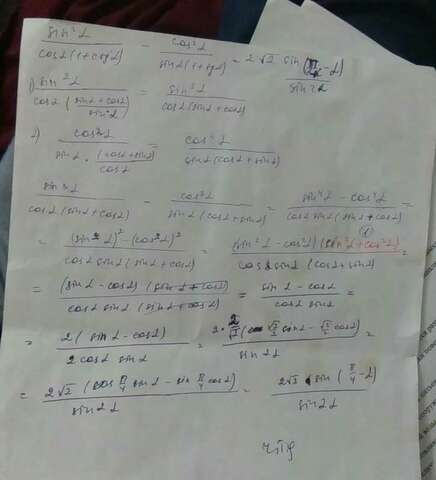 sin²α / cosα(1+ctgα) − cos²α / sinα(1+tgα) = 2√2 sin(π/4−α) / sin2α
1) sin²α / cosα(sinα+cosα / sinα) = sin³α / cosα(sinα+cosα)
2) cos²α / sinα·(cosα+sinα)/cosα = cos³α / sinα(cosα+sinα)
sin³α / cosα(sinα+cosα) − cos³α / sinα(cosα+sinα) = sin⁴α − cos⁴α / cosα sinα(sinα+cosα) =
= (sin²α)² − (cos²α)² / cosα sinα(sinα+cosα) = (sin²α − cos²α)(sin²α+cos²α) / cosα sinα(cosα+sinα) =
= (sinα − cosα)(sinα+cosα) / cosα sinα(sinα+cosα) = sinα − cosα / cosα sinα =
= 2(sinα − cosα) / 2cosα sinα = 2·2/√2(√2/2 sinα − √2/2 cosα) / sin2α =
= 2√2(cos π/4 sinα − sin π/4 cosα) / sin2α = 2√2 sin(π/4−α) / sin2α
чтд